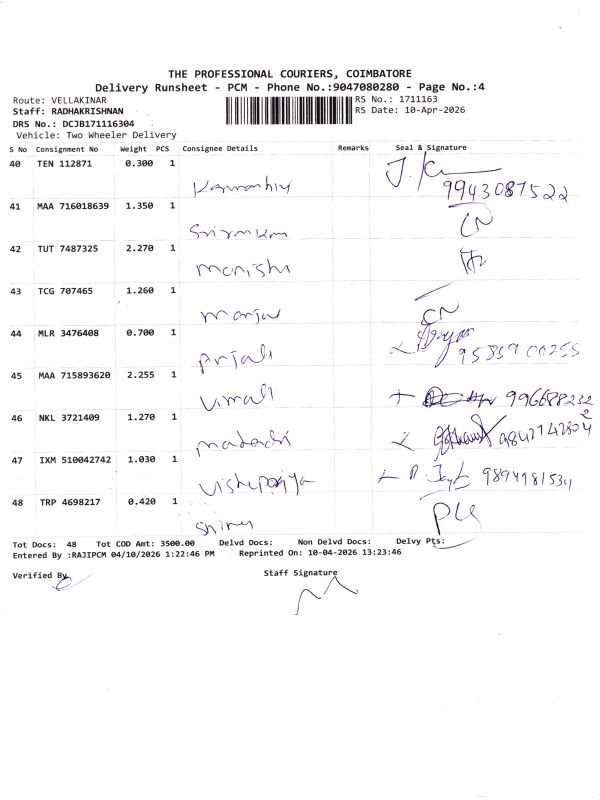 THE PROFESSIONAL COURIERS, COIMBATORE
Delivery Runsheet - PCM - Phone No.:9047080280 - Page No.:4
Route: VELLAKINAR RS No.: 1711163
Staff: RADHAKRISHNAN RS Date: 10-Apr-2026
DRS No.: DCJB171116304
Vehicle: Two Wheeler Delivery
S No Consignment No Weight PCS Consignee Details Remarks Seal & Signature
40 TEN 112871 0.300 1
9943087522
41 MAA 716018639 1.350 1
CN
42 TUT 7487325 2.270 1
Manisha
43 TCG 707465 1.260 1
Manju CN
44 MLR 3476408 0.700 1
Anjali
45 MAA 715893620 2.255 1
Vimal
46 NKL 3721409 1.270 1
47 IXM 510042742 1.030 1
Vishupriya 9894981534
48 TRP 4698217 0.420 1
Tot Docs: 48 Tot COD Amt: 3500.00 Delvd Docs: Non Delvd Docs: Delvy Pts:
Entered By :RAJIPCM 04/10/2026 1:22:46 PM Reprinted On: 10-04-2026 13:23:46
Verified By Staff Signature